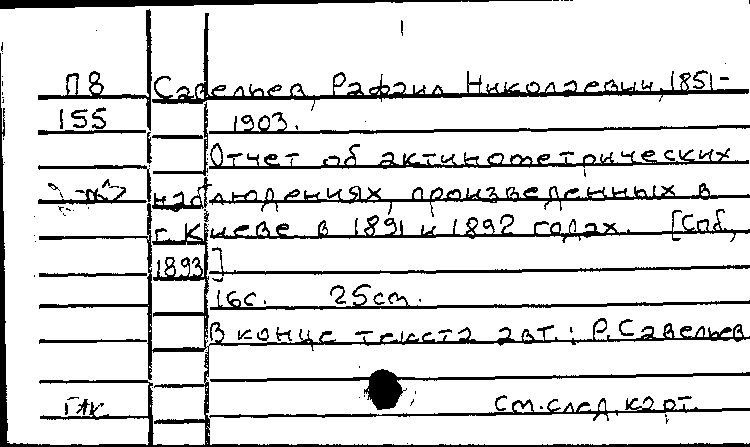 П8 Савельев, Рафаил Николаевич, 1851-
155 1903.
Отчет об актинометрических
наблюдениях, произведенных в
г. Киеве в 1891 и 1892 годах. [Спб,
1893]
16с. 25cm.
В конце текста авт.: Р. Савельев
см. след. карт.